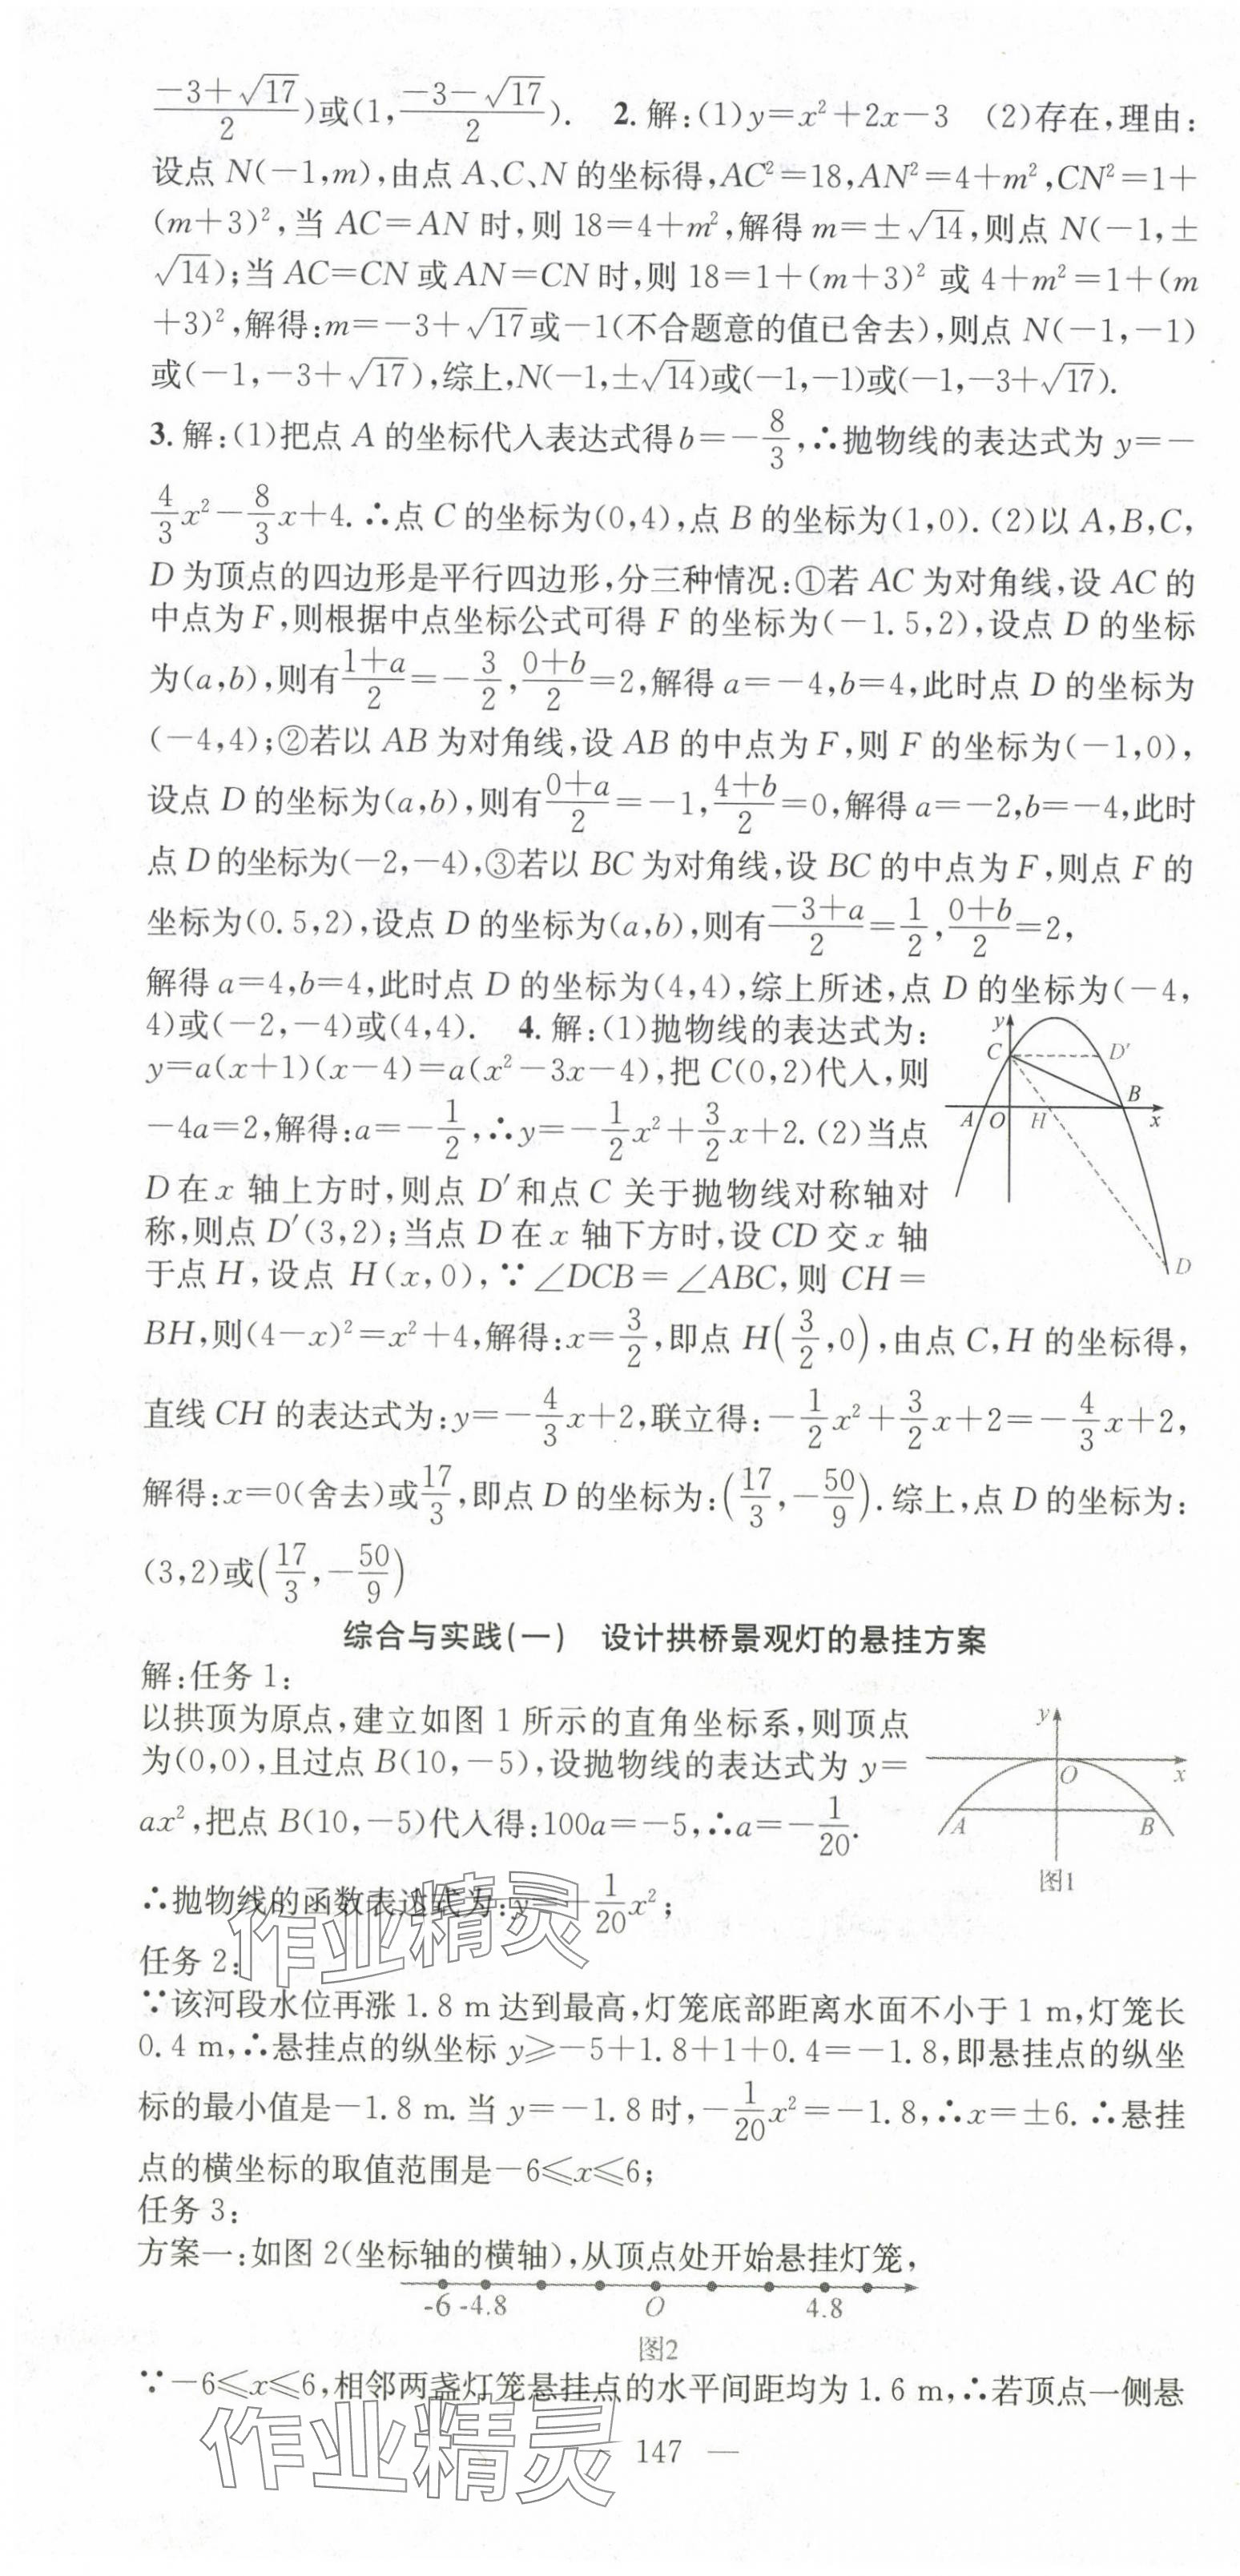 $\frac{-3+\sqrt{17}}{2}$)或(1,$\frac{-3-\sqrt{17}}{2}$). 2.解:(1)y=x²+2x-3 (2)存在,理由:
设点 N(-1,m),由点 A、C、N 的坐标得,AC²=18,AN²=4+m²,CN²=1+
(m+3)²,当 AC=AN 时,则 18=4+m²,解得 m=±√14,则点 N(-1,±
√14);当 AC=CN 或 AN=CN 时,则 18=1+(m+3)² 或 4+m²=1+(m
+3)²,解得:m=-3+√17或-1(不合题意的值已舍去),则点 N(-1,-1)
或(-1,-3+√17),综上,N(-1,±√14)或(-1,-1)或(-1,-3+√17).
3.解:(1)把点 A 的坐标代入表达式得 b=-$\frac{8}{3}$,∴抛物线的表达式为 y=-
$\frac{4}{3}$x²-$\frac{8}{3}$x+4.∴点 C 的坐标为(0,4),点 B 的坐标为(1,0).(2)以 A,B,C,
D 为顶点的四边形是平行四边形,分三种情况:①若 AC 为对角线,设 AC 的
中点为 F,则根据中点坐标公式可得 F 的坐标为(-1.5,2),设点 D 的坐标
为(a,b),则有$\frac{1+a}{2}$=-$\frac{3}{2}$,$\frac{0+b}{2}$=2,解得 a=-4,b=4,此时点 D 的坐标为
(-4,4);②若以 AB 为对角线,设 AB 的中点为 F,则 F 的坐标为(-1,0),
设点 D 的坐标为(a,b),则有$\frac{0+a}{2}$=-1,$\frac{4+b}{2}$=0,解得 a=-2,b=-4,此时
点 D 的坐标为(-2,-4),③若以 BC 为对角线,设 BC 的中点为 F,则点 F 的
坐标为(0.5,2),设点 D 的坐标为(a,b),则有$\frac{-3+a}{2}$=$\frac{1}{2}$,$\frac{0+b}{2}$=2,
解得 a=4,b=4,此时点 D 的坐标为(4,4),综上所述,点 D 的坐标为(-4,
4)或(-2,-4)或(4,4). 4.解:(1)抛物线的表达式为:
y=a(x+1)(x-4)=a(x²-3x-4),把 C(0,2)代入,则
-4a=2,解得:a=-$\frac{1}{2}$,∴y=-$\frac{1}{2}$x²+$\frac{3}{2}$x+2.(2)当点
D 在 x 轴上方时,则点 D′和点 C 关于抛物线对称轴对
称,则点 D′(3,2);当点 D 在 x 轴下方时,设 CD 交 x 轴
于点 H,设点 H(x,0),∵∠DCB=∠ABC,则 CH=
y
C
D′
B
A
O
H
x
D
BH,则(4-x)²=x²+4,解得:x=$\frac{3}{2}$,即点 H($\frac{3}{2}$,0),由点 C,H 的坐标得,
直线 CH 的表达式为:y=-$\frac{4}{3}$x+2,联立得:-$\frac{1}{2}$x²+$\frac{3}{2}$x+2=-$\frac{4}{3}$x+2,
解得:x=0(舍去)或$\frac{17}{3}$,即点 D 的坐标为:($\frac{17}{3}$,-$\frac{50}{9}$).综上,点 D 的坐标为:
(3,2)或($\frac{17}{3}$,-$\frac{50}{9}$)
综合与实践(一) 设计拱桥景观灯的悬挂方案
解:任务 1:
以拱顶为原点,建立如图 1 所示的直角坐标系,则顶点
为(0,0),且过点 B(10,-5),设抛物线的表达式为 y=
ax²,把点 B(10,-5)代入得:100a=-5,∴a=-$\frac{1}{20}$.
y
O
x
A
B
图1
∴抛物线的函数表达式为:y=-$\frac{1}{20}$x²;
任务 2:
∵该河段水位再涨 1.8 m 达到最高,灯笼底部距离水面不小于 1 m,灯笼长
0.4 m,∴悬挂点的纵坐标 y≥-5+1.8+1+0.4=-1.8,即悬挂点的纵坐
标的最小值是-1.8 m.当 y=-1.8 时,-$\frac{1}{20}$x²=-1.8,∴x=±6.∴悬挂
点的横坐标的取值范围是-6≤x≤6;
任务 3:
方案一:如图 2(坐标轴的横轴),从顶点处开始悬挂灯笼,
-6 -4.8 O 4.8
图2
∵-6≤x≤6,相邻两盏灯笼悬挂点的水平间距均为 1.6 m,∴若顶点一侧悬
147 —
作业精灵
作业精灵